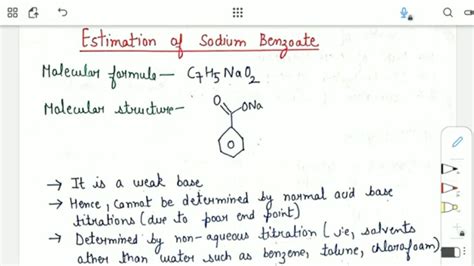 Estimation of Sodium Benzoate
Molecular formula – C7H5NaO2
Molecular structure –
O
ONa
→ It is a weak base
→ Hence, cannot be determined by normal acid base
titrations (due to poor end point)
→ Determined by non-aqueous titration (i.e, solvents
other than water such as benzene, tolune, chloroform)